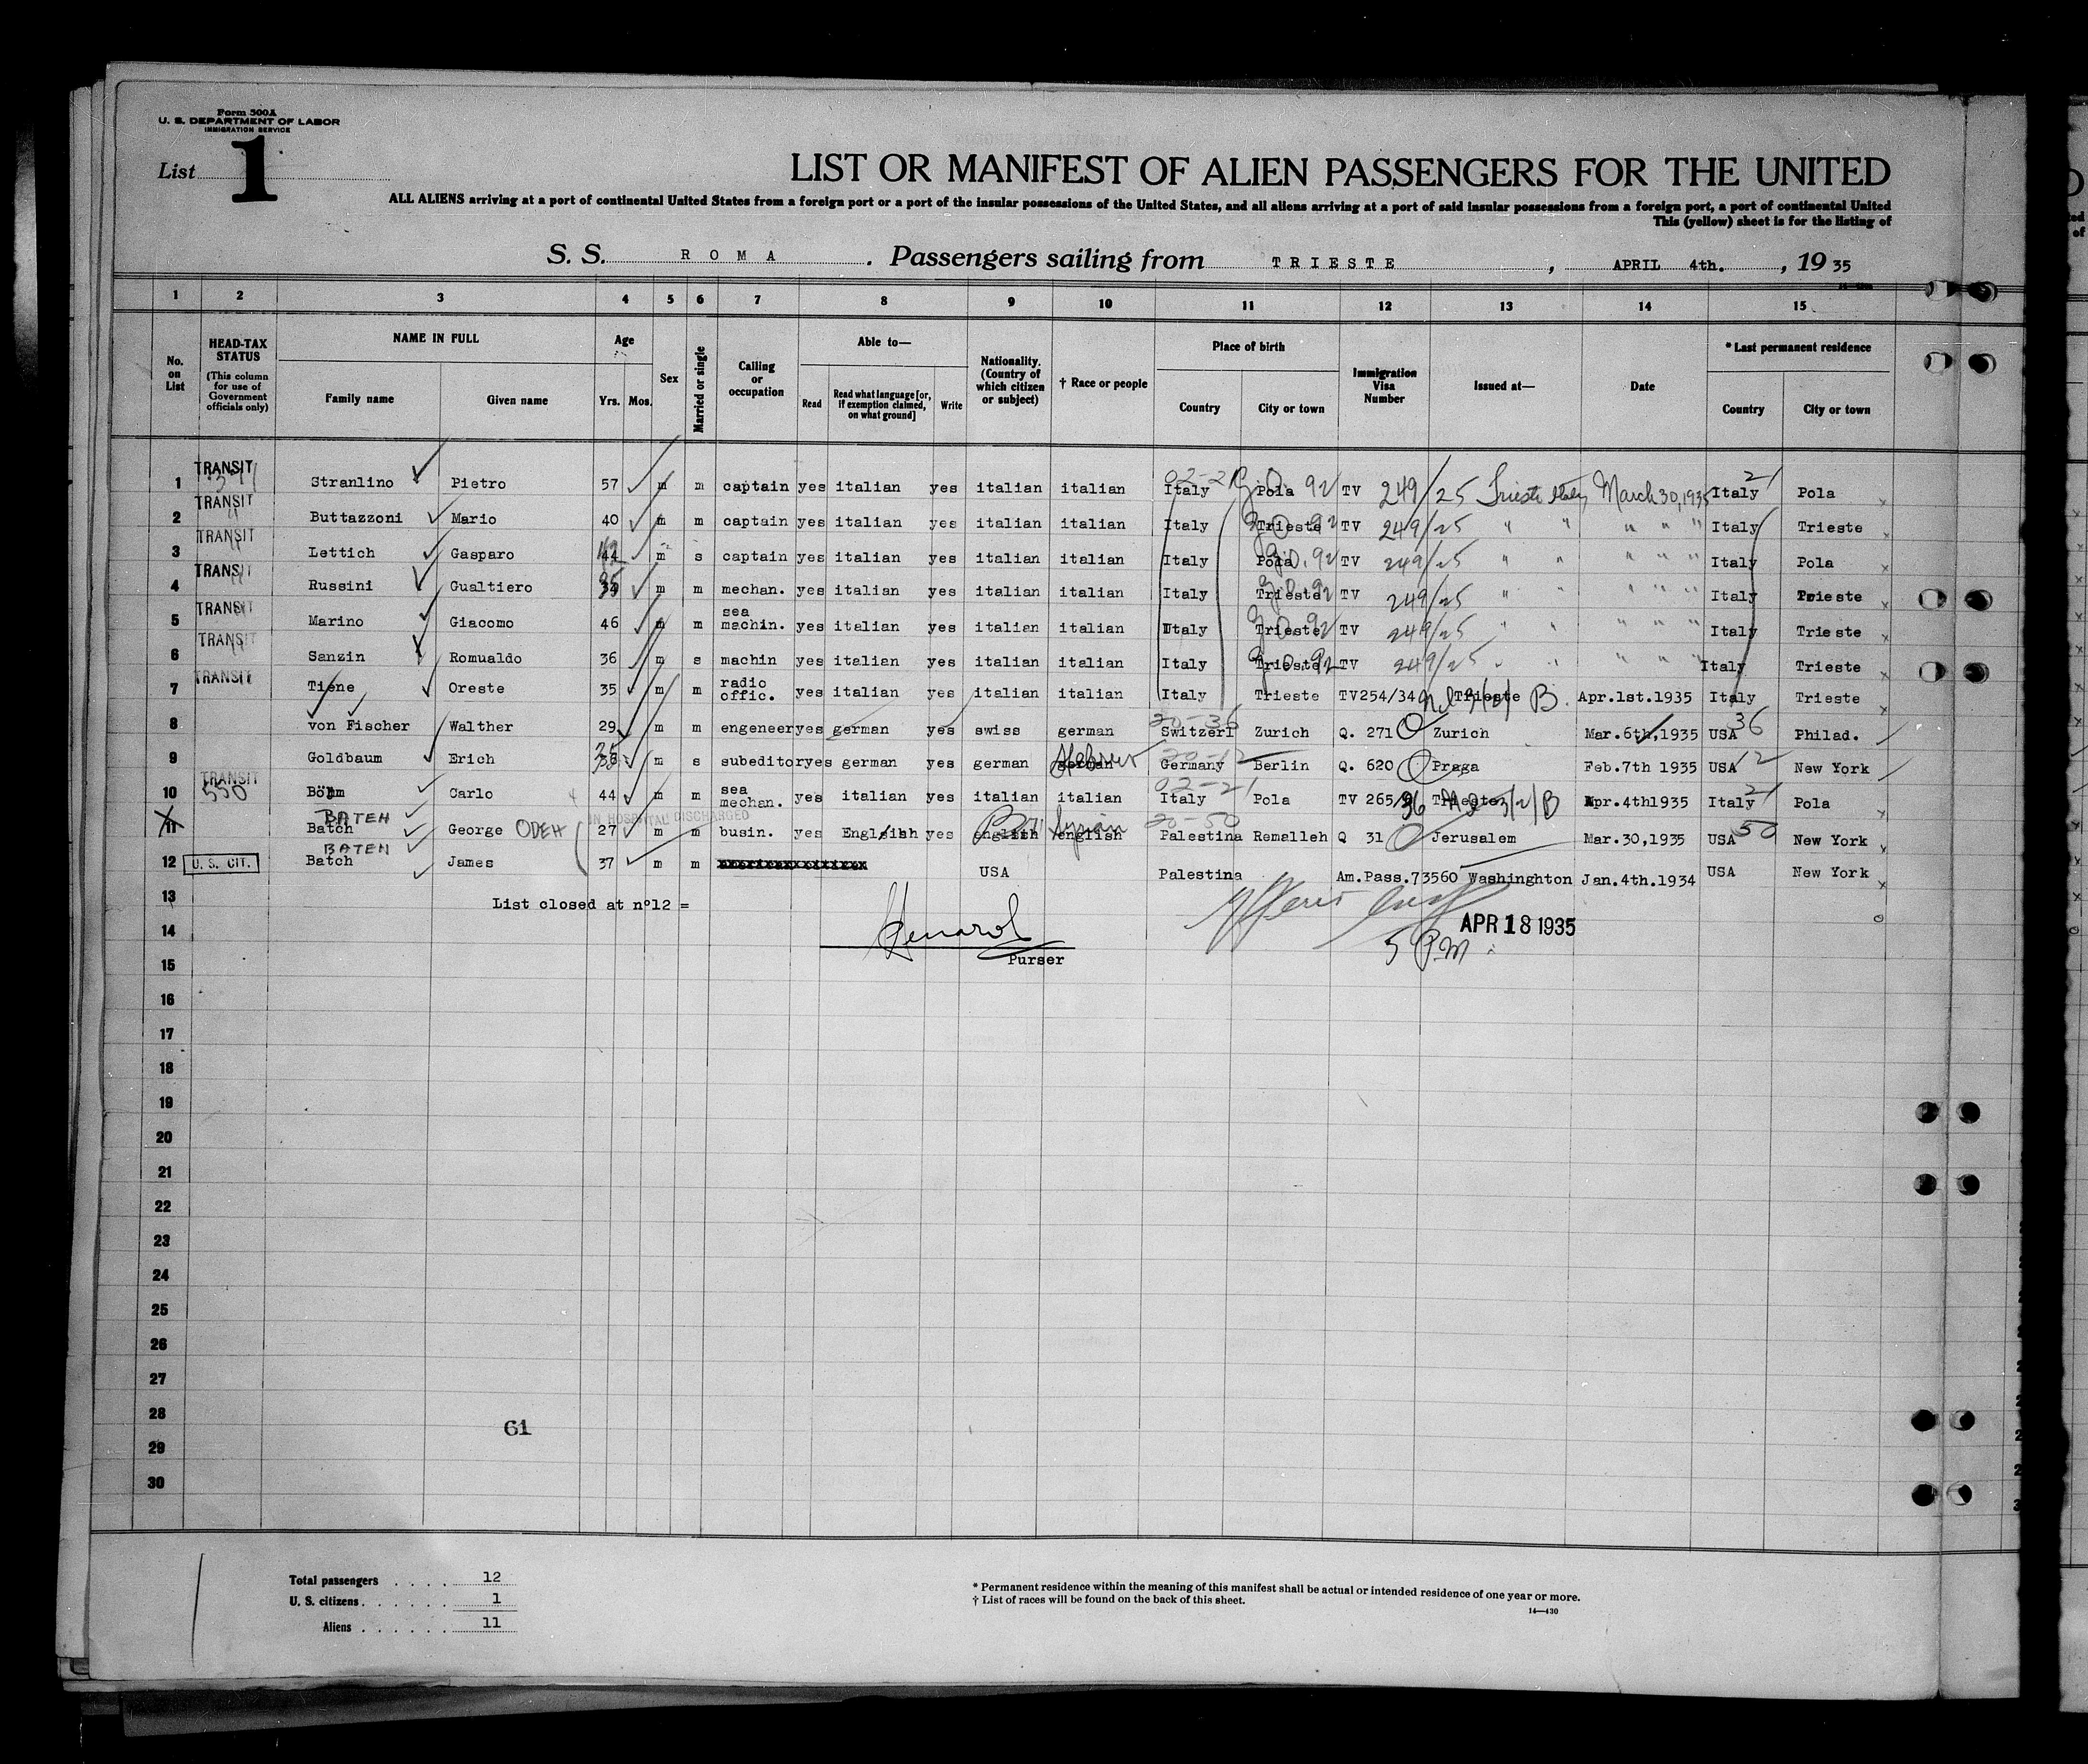 Form 500A
U. S. DEPARTMENT OF LABOR
IMMIGRATION SERVICE
List 1
LIST OR MANIFEST OF ALIEN PASSENGERS FOR THE UNITED
ALL ALIENS arriving at a port of continental United States from a foreign port or a port of the insular possessions of the United States, and all aliens arriving at a port of said insular possessions from a foreign port, a port of continental United
This (yellow) sheet is for the listing of
S. S. ROMA. Passengers sailing from TRIESTE, APRIL 4th., 1935
1 2 3 4 5 6 7 8 9 10 11 12 13 14 15
No. on List
HEAD-TAX STATUS (This column for use of Government officials only)
NAME IN FULL
Family name Given name
Age
Yrs. Mos.
Sex
Married or single
Calling or occupation
Able to—
Read Read what language [or, if exemption claimed, on what ground] Write
Nationality. (Country of which citizen or subject)
† Race or people
Place of birth
Country City or town
Immigration Visa Number
Issued at—
Date
* Last permanent residence
Country City or town
1 TRANSIT Stranlino Pietro 57 m m captain yes italian yes italian italian Italy Pola TV 249/25 Trieste Italy March 30, 1935 Italy Pola
2 TRANSIT Buttazzoni Mario 40 m m captain yes italian yes italian italian Italy Trieste TV 249/25 " " " " " Italy Trieste
3 TRANSIT Lettich Gasparo 44 m s captain yes italian yes italian italian Italy Pola TV 249/25 " " " " " Italy Pola
4 TRANSIT Russini Gualtiero m m mechan. yes italian yes italian italian Italy Trieste TV 249/25 " " " " " Italy Trieste
5 TRANSIT Marino Giacomo 46 m m sea mechin. yes italian yes italian italian Italy Trieste TV 249/25 " " " " " Italy Trieste
6 TRANSIT Sanzin Romualdo 36 m s machin yes italian yes italian italian Italy Trieste TV 249/25 " " " " " Italy Trieste
7 TRANSIT Tiene Oreste 35 m m radio offic. yes italian yes italian italian Italy Trieste TV254/34 Trieste B. Apr.1st.1935 Italy Trieste
8 von Fischer Walther 29 m m engeneer yes german yes swiss german 20-36 Switzerl Zurich Q. 271 Zurich Mar.6th,1935 USA 36 Philad.
9 Goldbaum Erich m s subeditor yes german yes german Hebrew 20-12 Germany Berlin Q. 620 Praga Feb.7th 1935 USA 12 New York
10 TRANSIT 550 Böhm Carlo 44 m m sea mechan. yes italian yes italian italian 02-21 Italy Pola TV 265/36 Trieste B Apr.4th1935 Italy 21 Pola
BATEH
IN HOSPITAL DISCHARGED
11 Batch George ODEH 27 m m busin. yes English yes english Syrian english 20-50 Palestina Remalleh Q 31 Jerusalem Mar.30,1935 USA 50 New York
BATEH
12 U. S. CIT. Batch James 37 m m american citizen USA Palestina Am.Pass.73560 Washinghton Jan.4th.1934 USA New York
13 List closed at n°12 =
14 APR 18 1935
5 P.M.
15 Purser
16
17
18
19
20
21
22
23
24
25
26
27
28
61
29
30
Total passengers . . . . 12
U. S. citizens . . . . . . 1
Aliens . . . . . . 11
* Permanent residence within the meaning of this manifest shall be actual or intended residence of one year or more.
† List of races will be found on the back of this sheet.
14—430